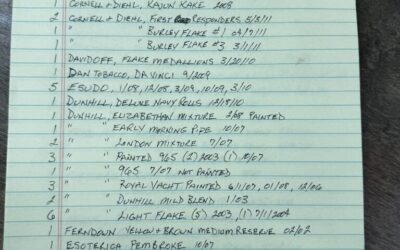 1 CORNELL + DIEHL, KAJUN KAKE 2008
2 CORNELL + DIEHL, FIRST RESPONDERS 5/3/11
1 " " BURLEY FLAKE #1 09/9/11
1 " " BURLEY FLAKE #3 3/1/11
1 DAVIDOFF, FLAKE MEDALLIONS 3/20/10
1 DAN TOBACCO, DA VINCI 9/2009
5 ESUDO, 1/08, 12/08, 3/09, 10/09, 3/10
1 DUNHILL, DELUXE NAVY ROLLS 12/18/10
1 DUNHILL, ELIZABETHAN MIXTURE 2/08 PAINTED
1 " " EARLY MORNING PIPE 10/07
2 " " LONDON MIXTURE 7/07
3 " " PAINTED 965 (2) 2003 (1) 10/07
1 " " 965 7/07 NOT PAINTED
3 " " ROYAL YACHT PAINTED 6/1/07, 01/08, 12/06
2 " " DUNHILL MILD BLEND 1/03
6 " " LIGHT FLAKE (5) 2003, (1) 7/1/2004
1 FERNDOWN YELLOW + BROWN MEDIUM RESERVE 02/02
1 ESOTERICA PEMBROKE 10/07